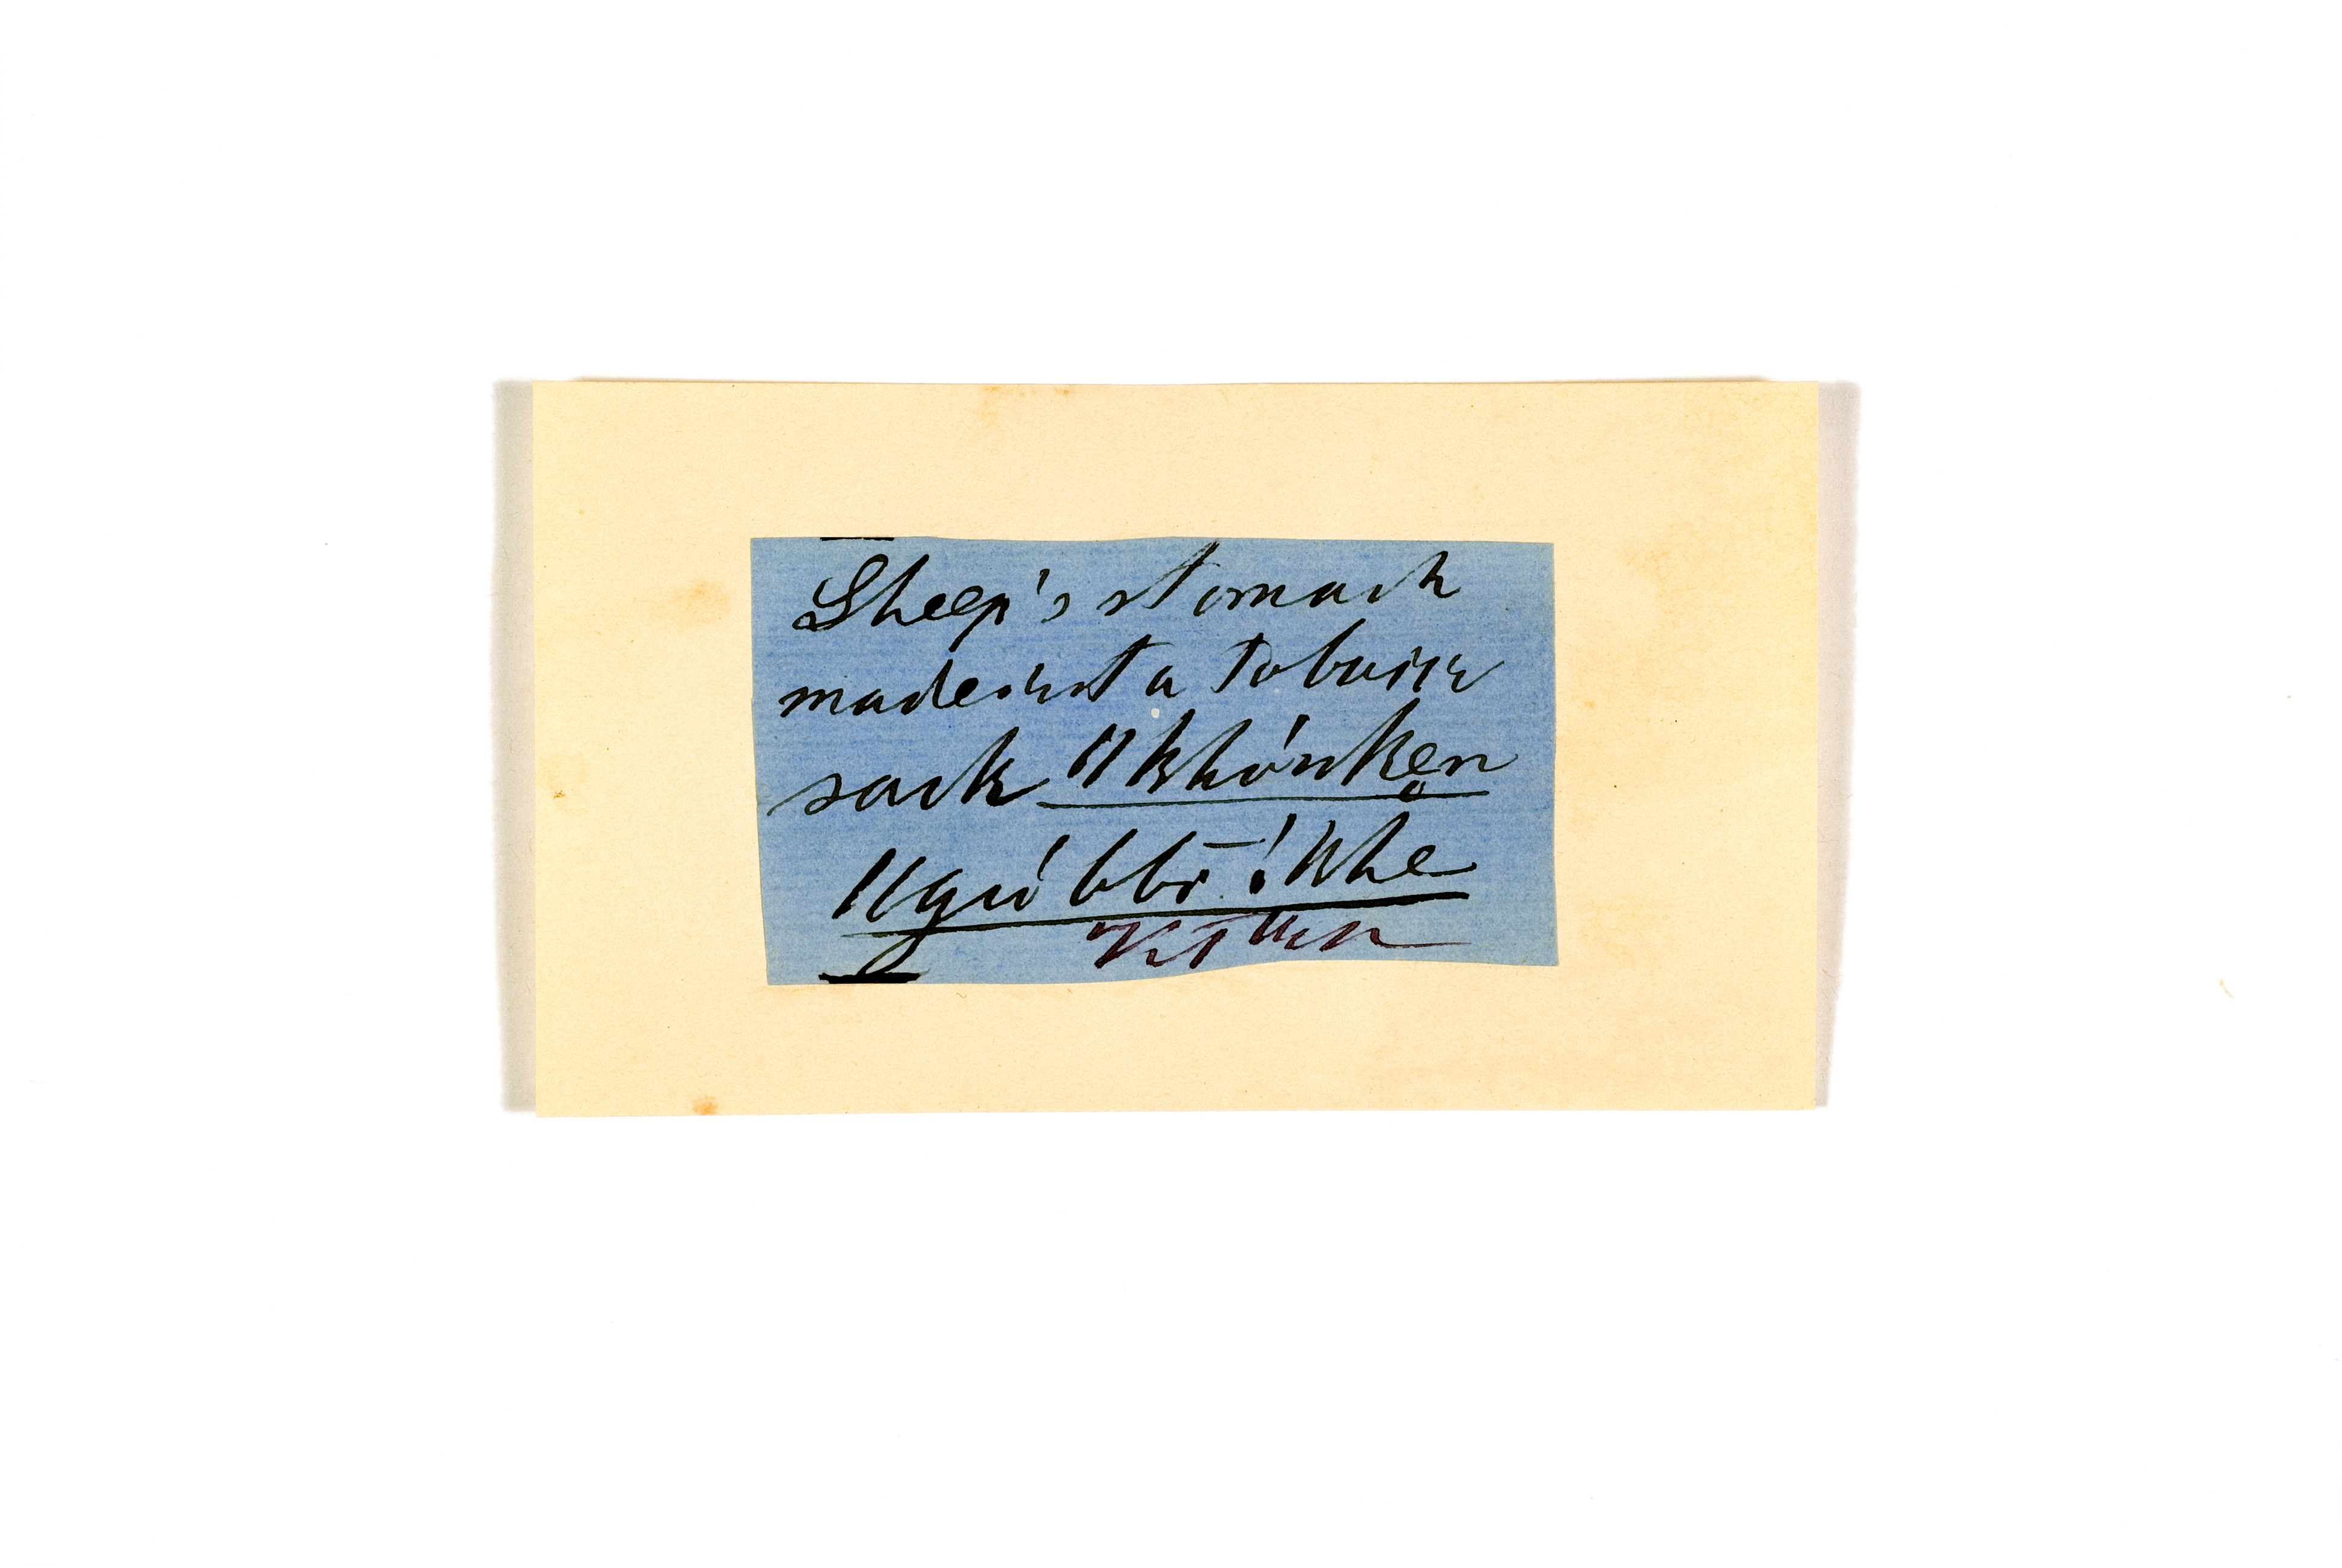 Sheep's stomach
made into a tobacco
sack ǁkhóuken̥
ǁgúö bbō ǃkhe